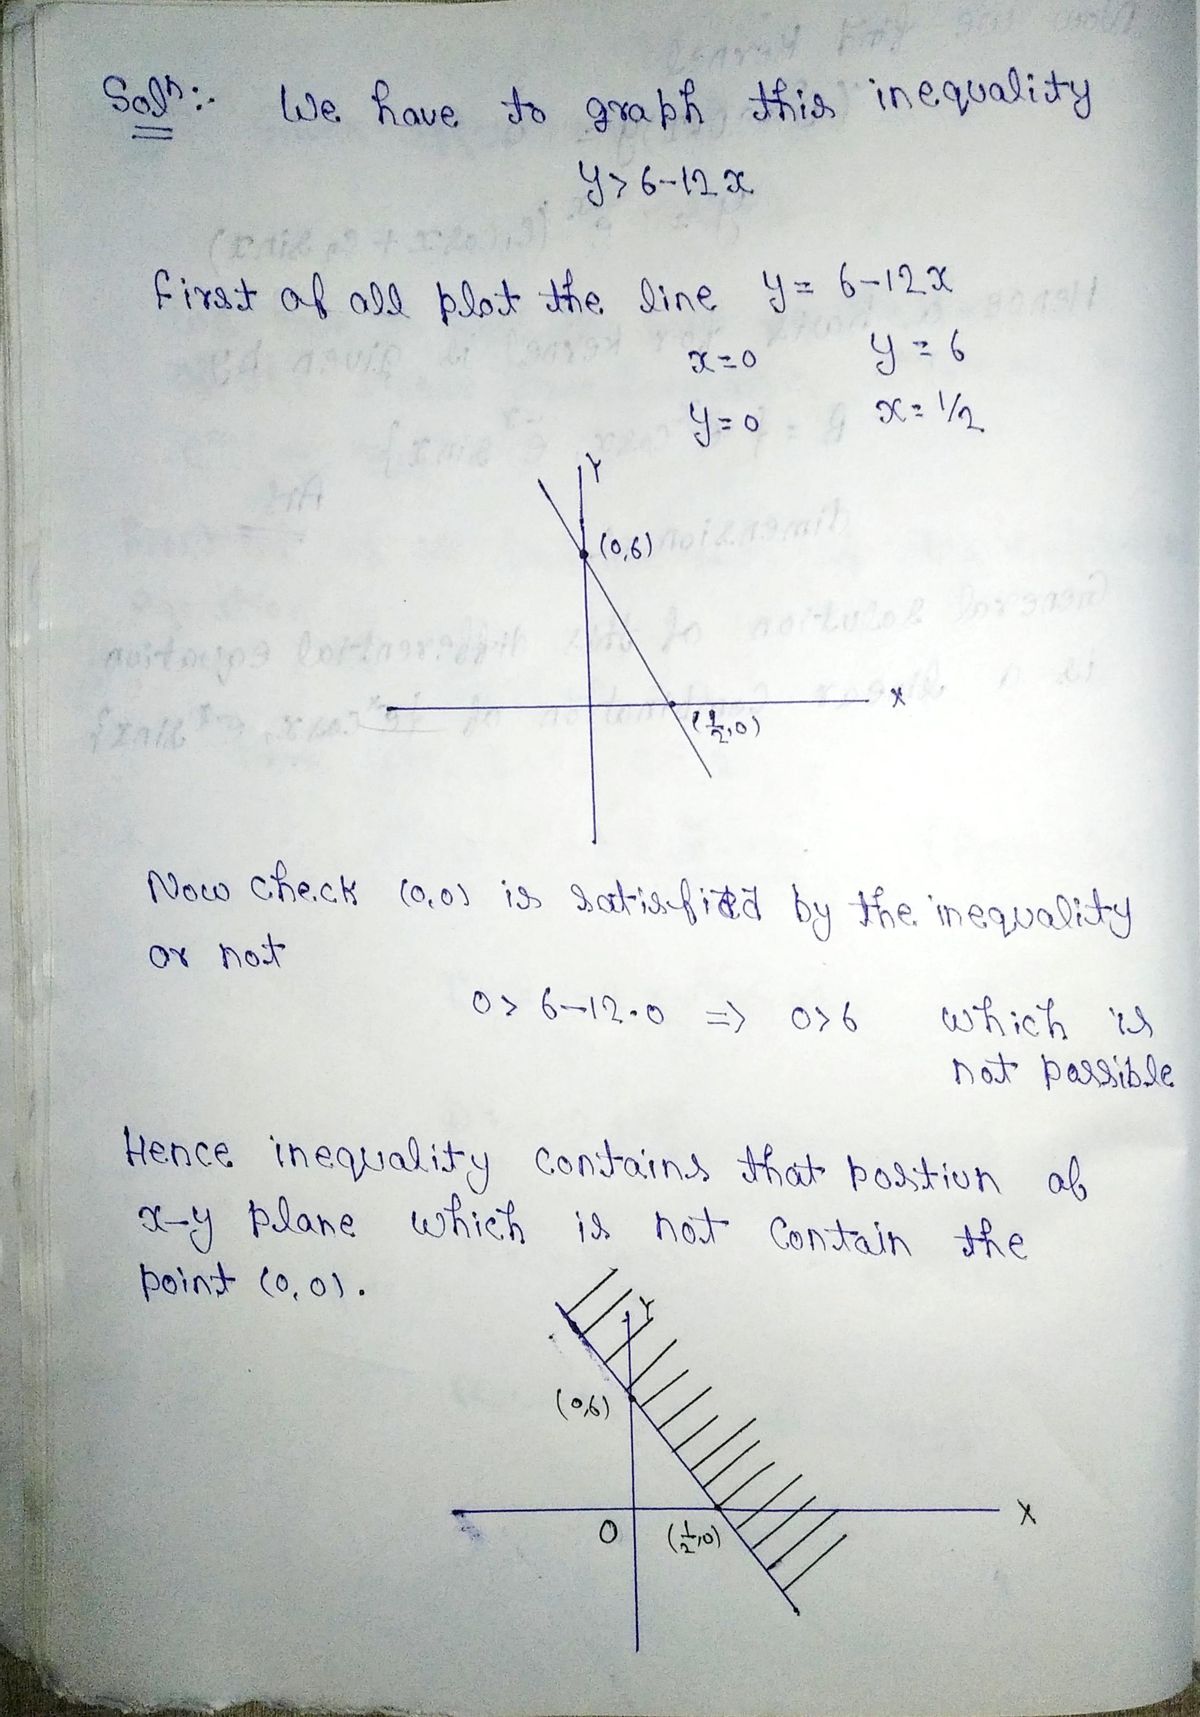 Solⁿ:- We have to graph this inequality
y > 6-12x
First of all plot the line y = 6-12x
x=0 y = 6
y=0 x = 1/2
Y
(0,6)
X
(1/2,0)
Now check (0,0) is satisfied by the inequality
or not
0 > 6-12.0 => 0>6 which is
not possible
Hence inequality contains that portion of
x-y plane which is not contain the
point (0,0).
Y
(0,6)
X
O (1/2,0)